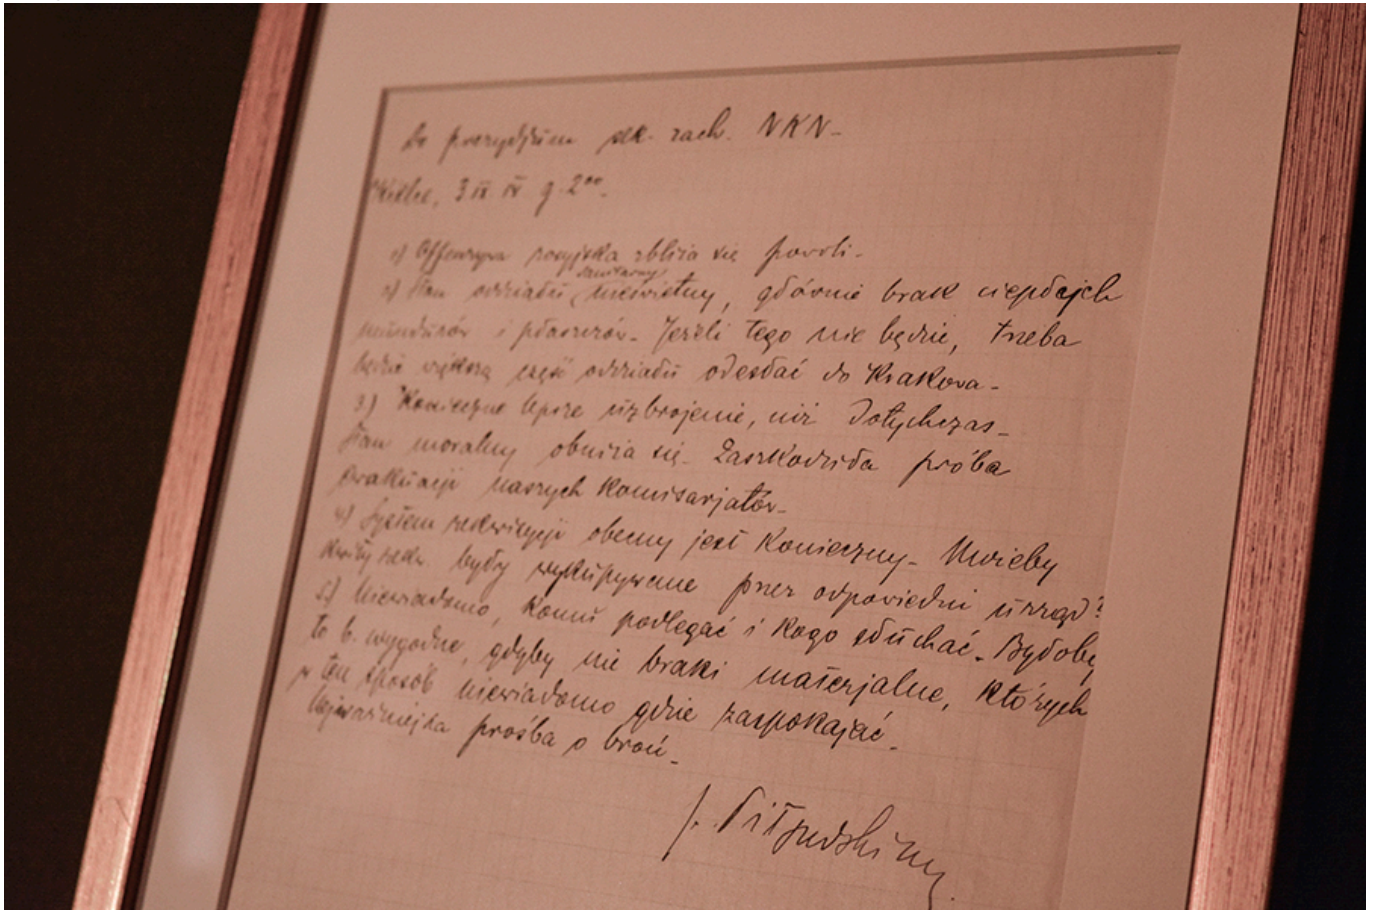 Do prezydjum sek. zach. NKN-
Kielce, 3 IX g. 2⁰⁰-
1) Offenzywa rosyjska zbliża się powoli-
2) Stan oddziału sanitarny nieświetny, głównie brak ciepłych
mundurów i płaszczów- Jeżeli tego nie będzie, trzeba
będzie większą część oddziału odesłać do Krakowa-
3) Konieczne lepsze uzbrojenie, niż dotychczas-
Stan moralny obniża się- Zaszkodziła próba
ewakuacji naszych komisarjatów-
4) System rekwizycji obecny jest konieczny- Mużeby
kwity rekw. były wykupywane przez odpowiedni urząd?
5) Niewiadomo, komu podlegać i kogo słuchać- Byłoby
to b. wygodne, gdyby nie braki materjalne, których
w ten sposób niewiadomo gdzie zaspokajać-
Najważniejsza prośba o broń-
J. Piłsudski